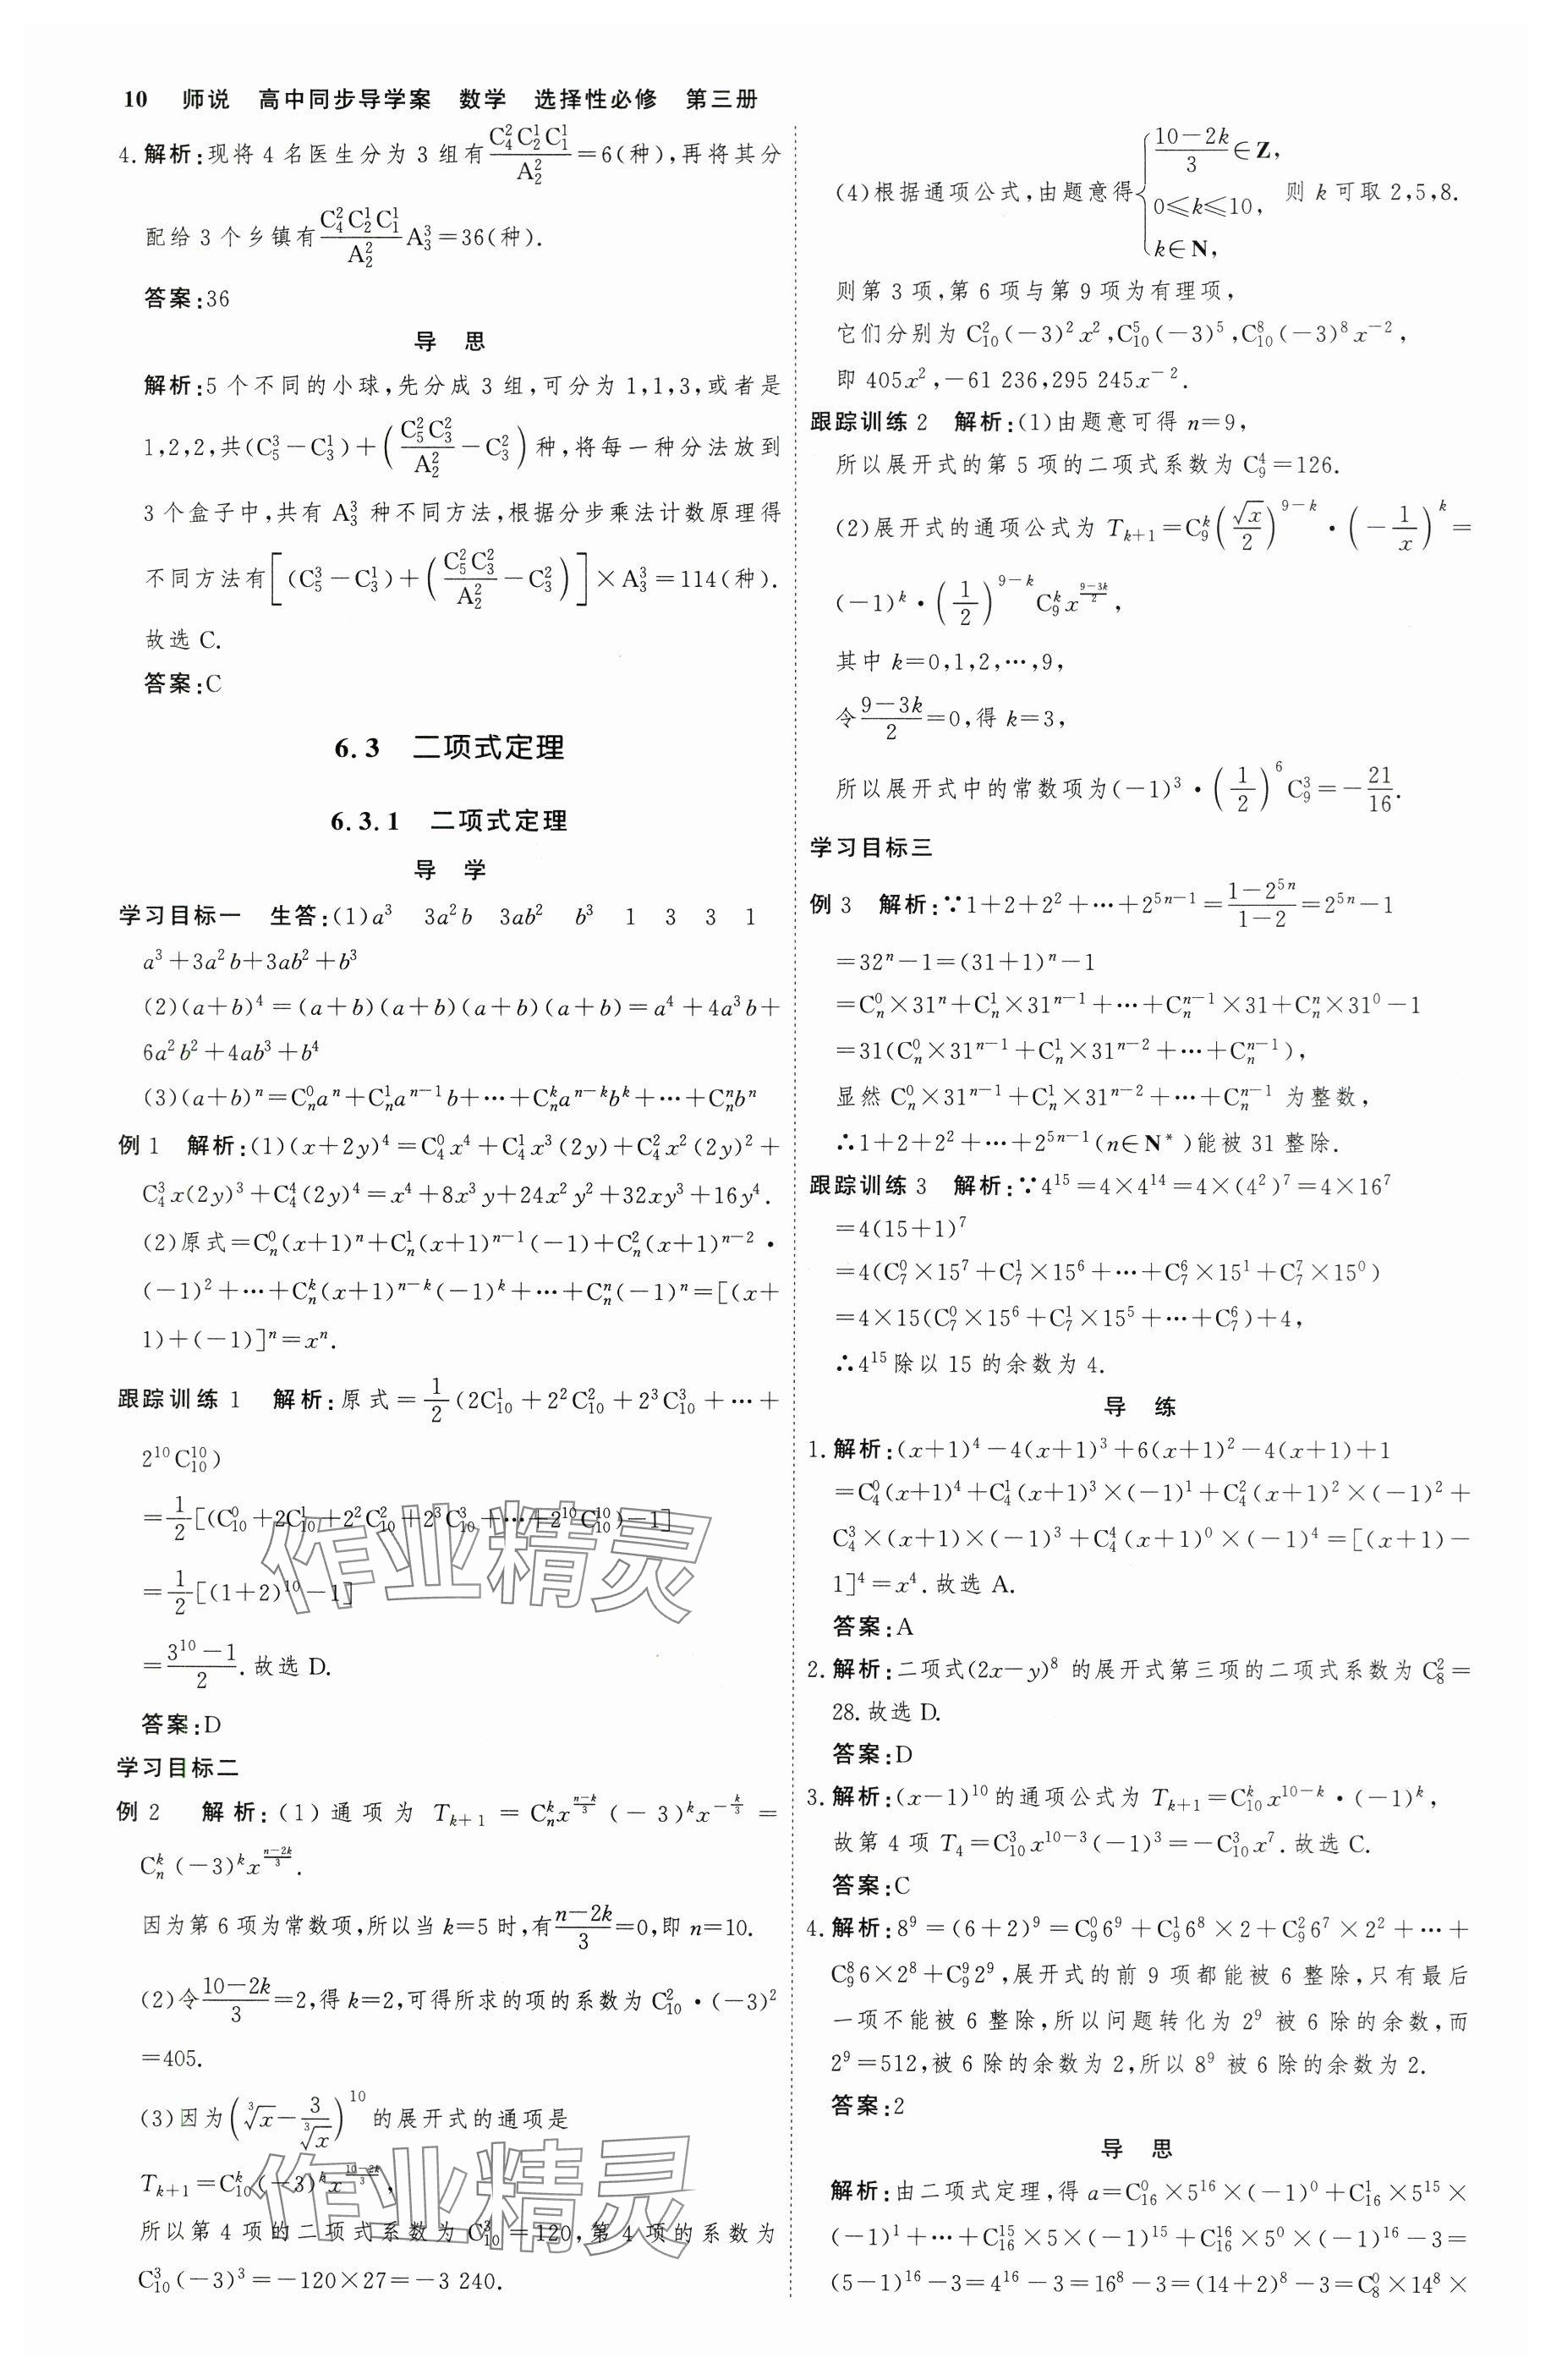 10 师说 高中同步导学案 数学 选择性必修 第三册
4. 解析:现将 4 名医生分为 3 组有\frac{C_4^2C_2^1C_1^1}{A_2^2}=6(种),再将其分
配给 3 个乡镇有\frac{C_4^2C_2^1C_1^1}{A_2^2}A_3^3=36(种).
答案:36
导 思
解析:5 个不同的小球,先分成 3 组,可分为 1,1,3,或者是
1,2,2,共(C_5^3-C_3^1)+(\frac{C_5^2C_3^2}{A_2^2}-C_3^2)种,将每一种分法放到
3 个盒子中,共有 A_3^3 种不同方法,根据分步乘法计数原理得
不同方法有[(C_5^3-C_3^1)+(\frac{C_5^2C_3^2}{A_2^2}-C_3^2)]×A_3^3=114(种).
故选 C.
答案:C
6.3 二项式定理
6.3.1 二项式定理
导 学
学习目标一 生答:(1)a^3 3a^2b 3ab^2 b^3 1 3 3 1
a^3+3a^2b+3ab^2+b^3
(2)(a+b)^4=(a+b)(a+b)(a+b)(a+b)=a^4+4a^3b+
6a^2b^2+4ab^3+b^4
(3)(a+b)^n=C_n^0a^n+C_n^1a^{n-1}b+…+C_n^ka^{n-k}b^k+…+C_n^nb^n
例 1 解析:(1)(x+2y)^4=C_4^0x^4+C_4^1x^3(2y)+C_4^2x^2(2y)^2+
C_4^3x(2y)^3+C_4^4(2y)^4=x^4+8x^3y+24x^2y^2+32xy^3+16y^4.
(2)原式=C_n^0(x+1)^n+C_n^1(x+1)^{n-1}(-1)+C_n^2(x+1)^{n-2}·
(-1)^2+…+C_n^k(x+1)^{n-k}(-1)^k+…+C_n^n(-1)^n=[(x+
1)+(-1)]^n=x^n.
跟踪训练 1 解析:原式=\frac{1}{2}(2C_{10}^1+2^2C_{10}^2+2^3C_{10}^3+…+
2^{10}C_{10}^{10})
=\frac{1}{2}[(C_{10}^0+2C_{10}^1+2^2C_{10}^2+2^3C_{10}^3+…+2^{10}C_{10}^{10})-1]
=\frac{1}{2}[(1+2)^{10}-1]
=\frac{3^{10}-1}{2}.故选 D.
答案:D
学习目标二
例 2 解析:(1)通项为 T_{k+1}=C_n^kx^{\frac{n-k}{3}}(-3)^kx^{-\frac{k}{3}}=
C_n^k(-3)^kx^{\frac{n-2k}{3}}.
因为第 6 项为常数项,所以当 k=5 时,有\frac{n-2k}{3}=0,即 n=10.
(2)令\frac{10-2k}{3}=2,得 k=2,可得所求的项的系数为 C_{10}^2·(-3)^2
=405.
(3)因为(\sqrt[3]{x}-\frac{3}{\sqrt[3]{x}})^{10}的展开式的通项是
T_{k+1}=C_{10}^k(-3)^kx^{\frac{10-2k}{3}},
所以第 4 项的二项式系数为 C_{10}^3=120,第 4 项的系数为
C_{10}^3(-3)^3=-120×27=-3 240.
(4)根据通项公式,由题意得{\frac{10-2k}{3}∈Z, 0≤k≤10, k∈N, 则 k 可取 2,5,8.
则第 3 项,第 6 项与第 9 项为有理项,
它们分别为 C_{10}^2(-3)^2x^2,C_{10}^5(-3)^5,C_{10}^8(-3)^8x^{-2},
即 405x^2,-61 236,295 245x^{-2}.
跟踪训练 2 解析:(1)由题意可得 n=9,
所以展开式的第 5 项的二项式系数为 C_9^4=126.
(2)展开式的通项公式为 T_{k+1}=C_9^k(\frac{\sqrt{x}}{2})^{9-k}·(-\frac{1}{x})^k=
(-1)^k·(\frac{1}{2})^{9-k}C_9^kx^{\frac{9-3k}{2}},
其中 k=0,1,2,…,9,
令\frac{9-3k}{2}=0,得 k=3,
所以展开式中的常数项为(-1)^3·(\frac{1}{2})^6C_9^3=-\frac{21}{16}.
学习目标三
例 3 解析:∵1+2+2^2+…+2^{5n-1}=\frac{1-2^{5n}}{1-2}=2^{5n}-1
=32^n-1=(31+1)^n-1
=C_n^0×31^n+C_n^1×31^{n-1}+…+C_n^{n-1}×31+C_n^n×31^0-1
=31(C_n^0×31^{n-1}+C_n^1×31^{n-2}+…+C_n^{n-1}),
显然 C_n^0×31^{n-1}+C_n^1×31^{n-2}+…+C_n^{n-1} 为整数,
∴1+2+2^2+…+2^{5n-1}(n∈N*)能被 31 整除.
跟踪训练 3 解析:∵4^{15}=4×4^{14}=4×(4^2)^7=4×16^7
=4(15+1)^7
=4(C_7^0×15^7+C_7^1×15^6+…+C_7^6×15^1+C_7^7×15^0)
=4×15(C_7^0×15^6+C_7^1×15^5+…+C_7^6)+4,
∴4^{15}除以 15 的余数为 4.
导 练
1. 解析:(x+1)^4-4(x+1)^3+6(x+1)^2-4(x+1)+1
=C_4^0(x+1)^4+C_4^1(x+1)^3×(-1)^1+C_4^2(x+1)^2×(-1)^2+
C_4^3×(x+1)×(-1)^3+C_4^4(x+1)^0×(-1)^4=[(x+1)-
1]^4=x^4.故选 A.
答案:A
2. 解析:二项式(2x-y)^8 的展开式第三项的二项式系数为 C_8^2=
28.故选 D.
答案:D
3. 解析:(x-1)^{10}的通项公式为 T_{k+1}=C_{10}^kx^{10-k}·(-1)^k,
故第 4 项 T_4=C_{10}^3x^{10-3}(-1)^3=-C_{10}^3x^7.故选 C.
答案:C
4. 解析:8^9=(6+2)^9=C_9^06^9+C_9^16^8×2+C_9^26^7×2^2+…+
C_9^86×2^8+C_9^92^9,展开式的前 9 项都能被 6 整除,只有最后
一项不能被 6 整除,所以问题转化为 2^9 被 6 除的余数,而
2^9=512,被 6 除的余数为 2,所以 8^9 被 6 除的余数为 2.
答案:2
导 思
解析:由二项式定理,得 a=C_{16}^0×5^{16}×(-1)^0+C_{16}^1×5^{15}×
(-1)^1+…+C_{16}^{15}×5×(-1)^{15}+C_{16}^{16}×5^0×(-1)^{16}-3=
(5-1)^{16}-3=4^{16}-3=16^8-3=(14+2)^8-3=C_8^0×14^8×
作业精灵
作业精灵